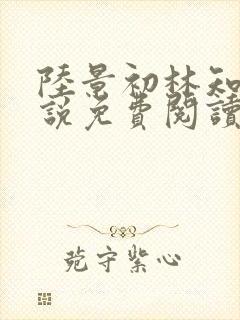 陸景初林知
說免費閱讀
菀守紫心